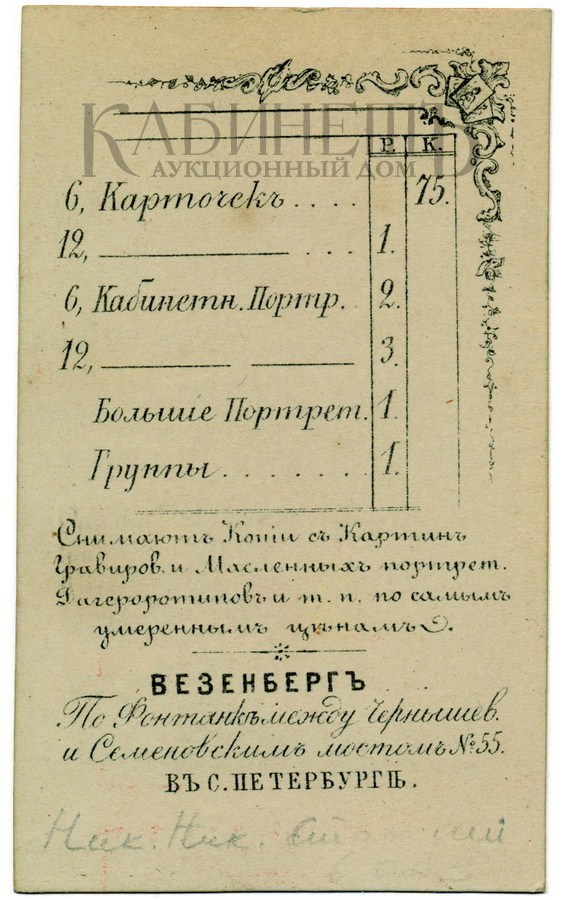 КАБИНЕТЪ
АУКЦИОННЫЙ ДОМ
Р. К.
6, Карточекъ .... 75.
12, ... 1.
6, Кабинетн. Портр. 2.
12, 3.
Большіе Портрет. 1.
Группы....... 1.
Снимаютъ Копіи съ Картинъ
Гравиров. и Масленныхъ портрет.
Дагерротиповъ и т. п. по самымъ
умереннымъ цѣнамъ.
ВЕЗЕНБЕРГЪ
По Фонтанкѣ между Чернышев.
и Семеновскимъ мостомъ № 55.
ВЪ С. ПЕТЕРБУРГѢ.
Ник. Ник.